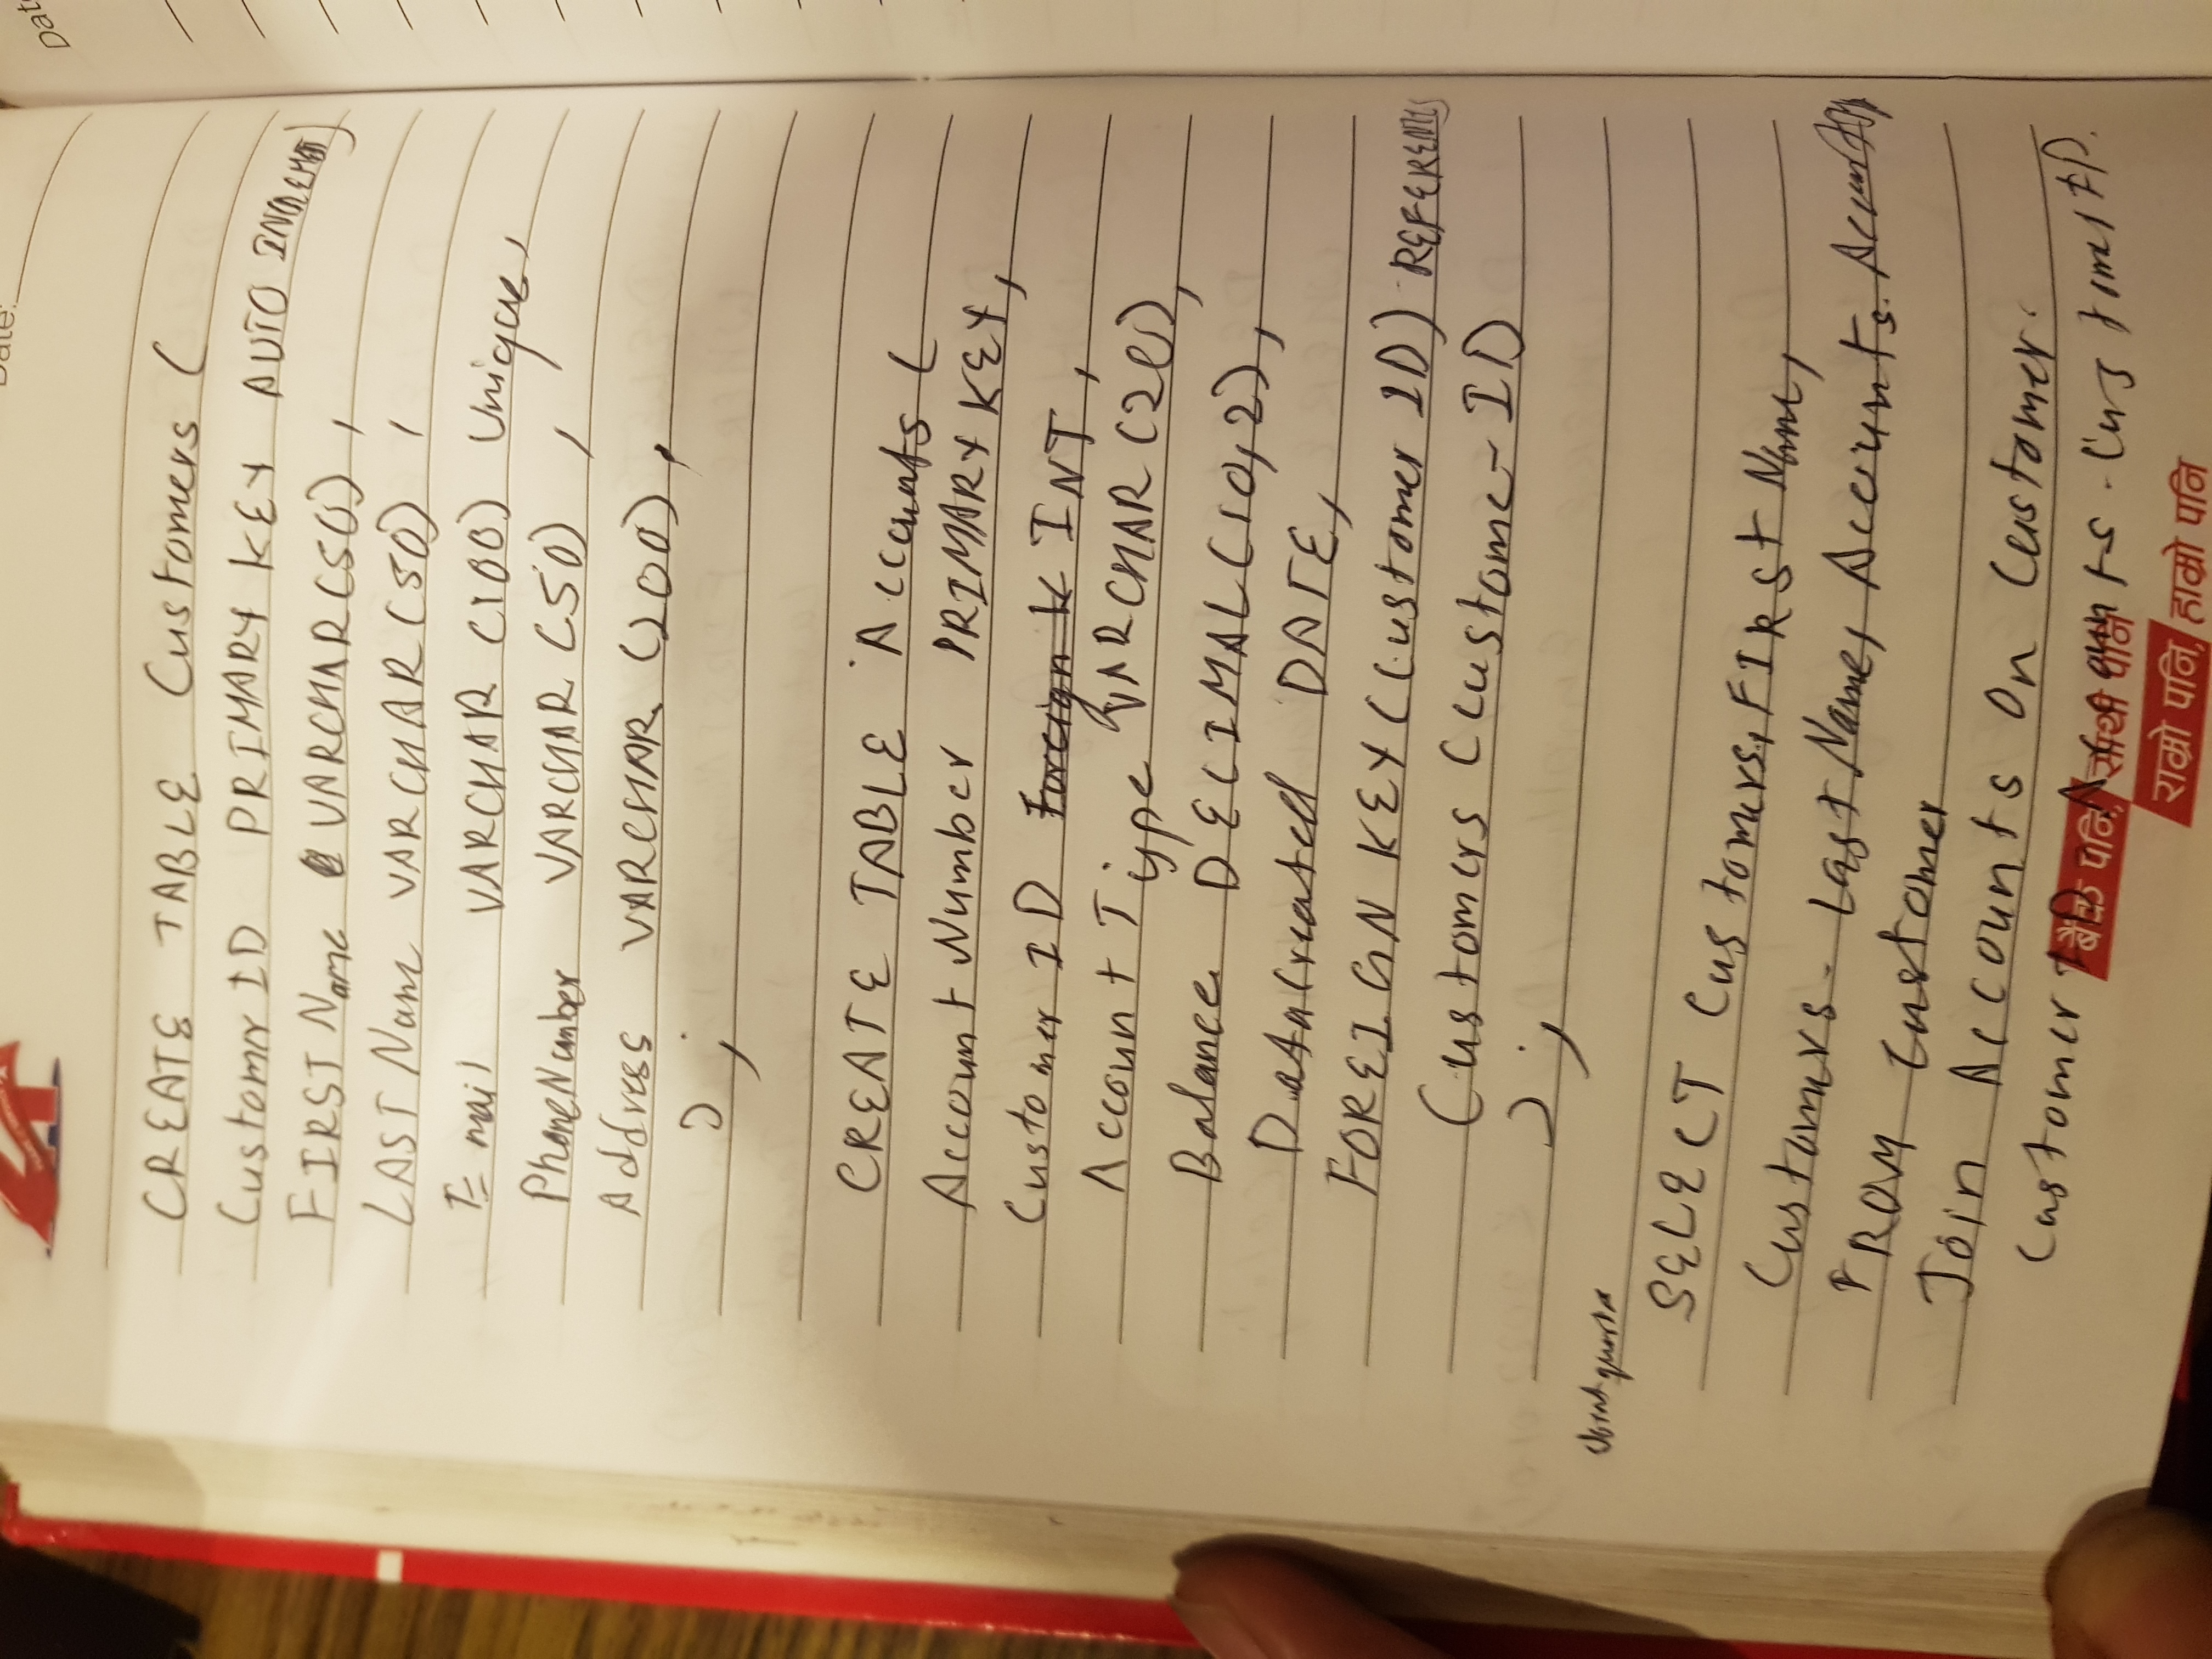 Date:
Date
CREATE TABLE Customers (
Customer ID PRIMARY KEY AUTO INCREMENT)
FIRST Name VARCHAR(50),
LAST Name VARCHAR (50) ,
E mail VARCHAR (100) Unique,
PhoneNumber VARCHAR (50) ,
Address VARCHAR (200),
) ;
CREATE TABLE Accounts (
Account Number PRIMARY KEY,
Customer ID Foreign K INT,
Account Type VARCHAR (20),
Balance DECIMAL(10,2),
DataCreated DATE,
FOREIGN KEY (Customer ID) REFERENCES
Customers (Custome- ID
) ;
SELECT Customers, FIRST Name,
Customers. Last Name, Accounts.
FROM Customer
Join Accounts On Customer.
Customer ID = Accounts. Customer ID.
बैंक पनि, साथी पनि
राम्रो पनि, हाम्रो पनि